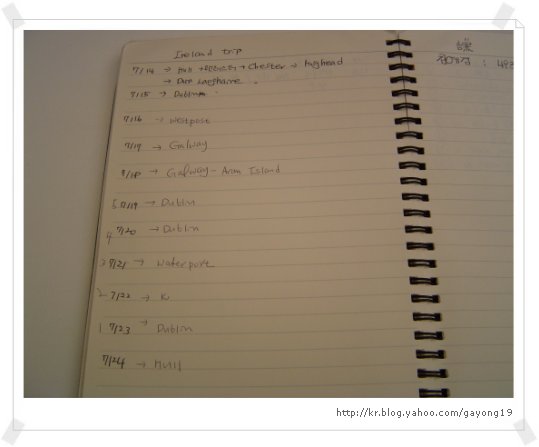 Ireland trip
7/14 → Hull → 맨체스터 → Chester → Holyhead
→ Dun Laoghaire.
7/15 → Dublin.
7/16 → Westport
7/17 → Galway
7/18 → Galway - Aran Island
5 7/19 → Dublin
4 7/20 → Dublin
3 7/21 → Waterport
2 7/22 → K
1 7/23 → Dublin
7/24 → Hull
http://kr.blog.yahoo.com/gayong19